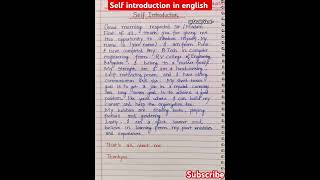 Self introduction in english
Self Introduction
Good morning respected Sir / Madam
First of all, I thank you for giving me
this opportunity to introduce myself. My
name is (your name). I am from Pune.
I have completed my B.Tech in Computer
engineering from RV college of Engineering
I belong to a nuclear family.
My strength are, I am a hardworking,
self motivating person, and I have strong
communication skill also. My short term
goal is to get a job in a reputed company
and long term goal is to achieve a good
position where I can build my
career and help the organization too.
My hobbies are reading books, playing
and gardening.
Lastly, I am a quick learner and
believe in learning from my past mistakes
and experiences.
That's all about me.
Thankyou.
Subscribe